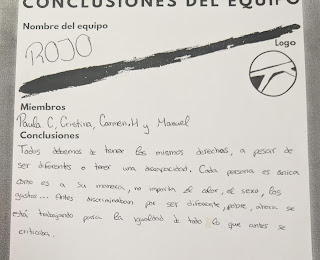 CONCLUSIONES DEL EQUIPO
Nombre del equipo
ROJO
Logo
Miembros
Paula C, Cristina, Carmen.H y Manuel
Conclusiones
Todos debemos de tener los mismos derechos, a pesar de
ser diferentes o tener una discapacidad. Cada persona es única
como es a su manera, no importa el color, el sexo, los
gustos... Antes discriminaban por ser diferente, pobre, ahora se
está trabajando para la igualdad de todo lo que antes se
criticaba.